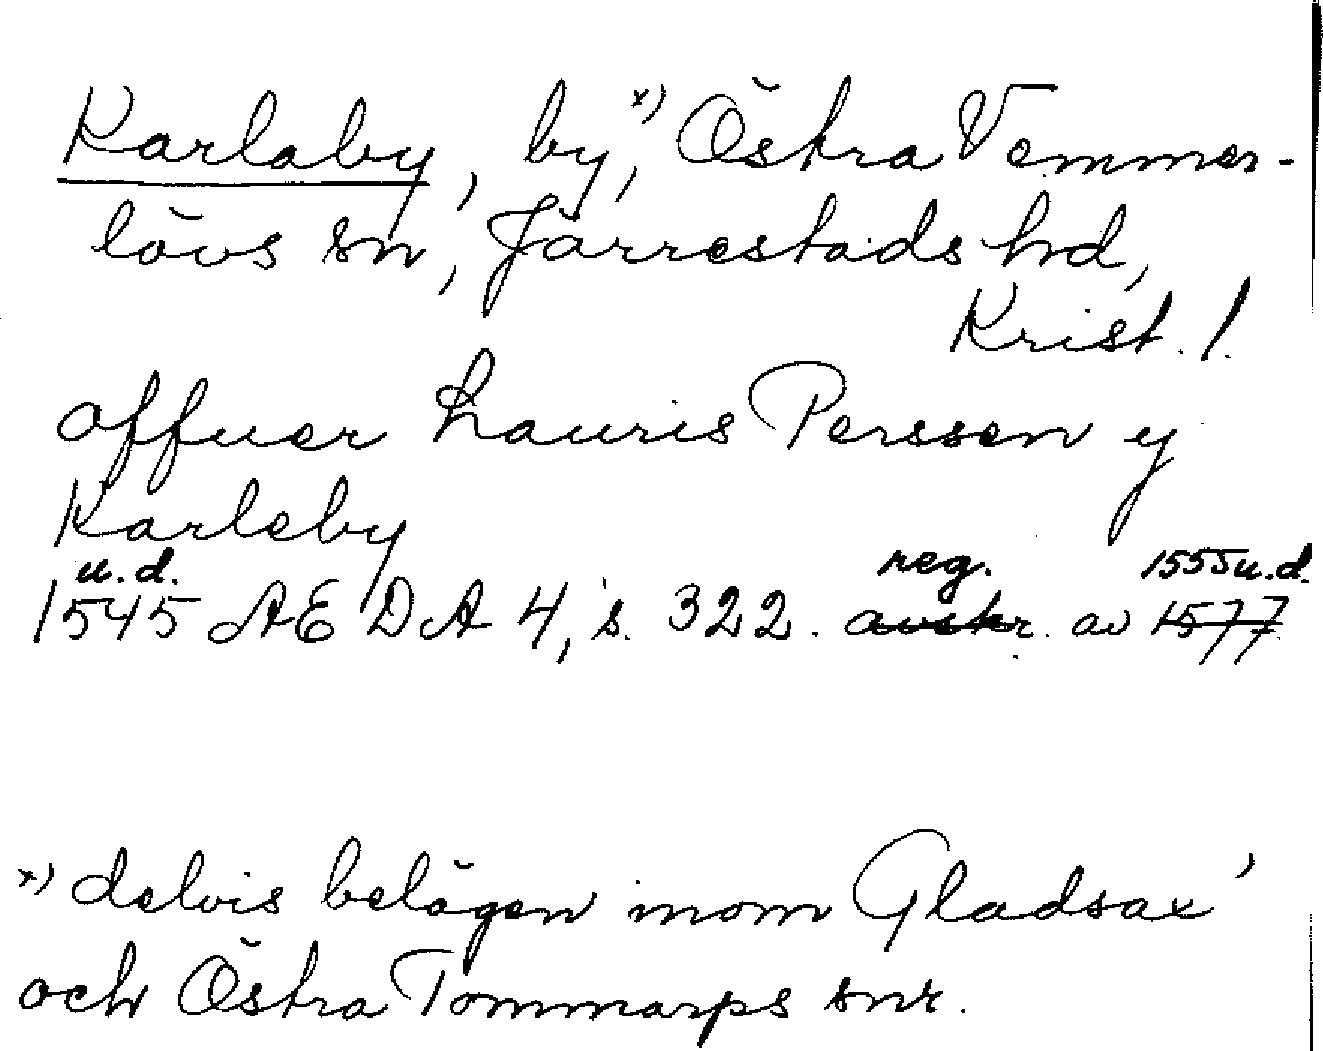 Karlaby, by,ˣ⁾ Östra Vemmer-
lövs sn, Järrestads hd,
Krist. l.
offuer Lauris Perssen y
Karleby
u.d. reg. 1555 u.d.
1545 AEDA 4, s. 322. avskr. av 1577
ˣ⁾ delvis belägen inom Gladsax'
och Östra Tommarps snr.